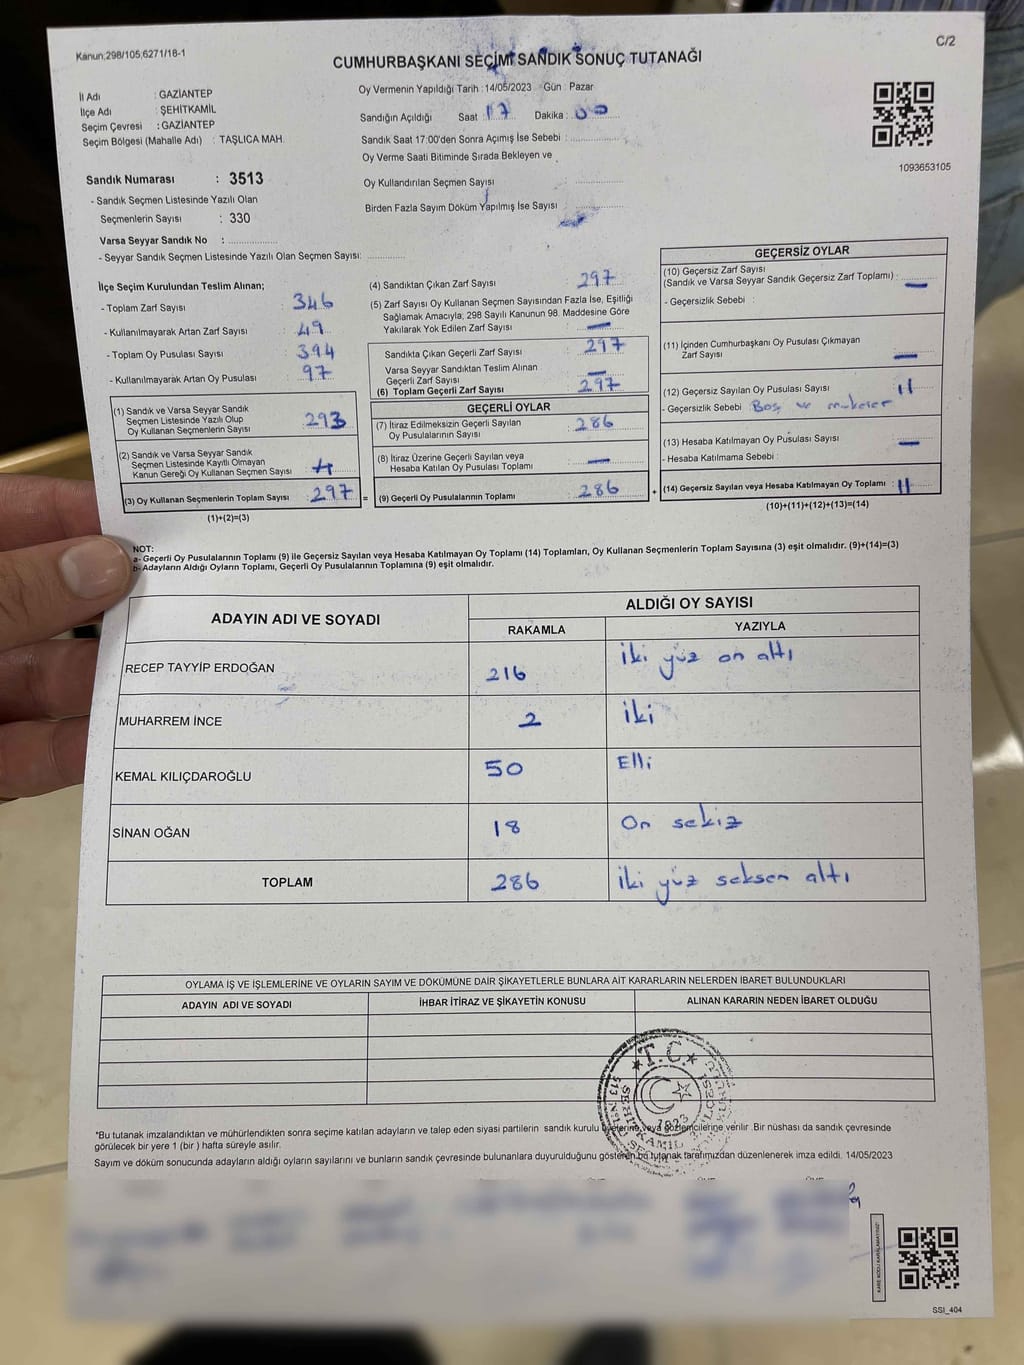 Kanun:298/105,6271/18-1
C/2
CUMHURBAŞKANI SEÇİMİ SANDIK SONUÇ TUTANAĞI
İl Adı : GAZİANTEP
İlçe Adı : ŞEHİTKAMİL
Seçim Çevresi : GAZİANTEP
Seçim Bölgesi (Mahalle Adı) : TAŞLICA MAH.
Oy Vermenin Yapıldığı Tarih : 14/05/2023 Gün : Pazar
Sandığın Açıldığı Saat 17 Dakika : 00
Sandık Saat 17:00'den Sonra Açımış İse Sebebi :
Oy Verme Saati Bitiminde Sırada Bekleyen ve
Oy Kullandırılan Seçmen Sayısı
Birden Fazla Sayım Döküm Yapılmış İse Sayısı
1093653105
Sandık Numarası : 3513
- Sandık Seçmen Listesinde Yazılı Olan
Seçmenlerin Sayısı : 330
Varsa Seyyar Sandık No :
- Seyyar Sandık Seçmen Listesinde Yazılı Olan Seçmen Sayısı:
İlçe Seçim Kurulundan Teslim Alınan;
- Toplam Zarf Sayısı 346
- Kullanılmayarak Artan Zarf Sayısı 49
- Toplam Oy Pusulası Sayısı 394
- Kullanılmayarak Artan Oy Pusulası 97
(1) Sandık ve Varsa Seyyar Sandık
Seçmen Listesinde Yazılı Olup
Oy Kullanan Seçmenlerin Sayısı 293
(2) Sandık ve Varsa Seyyar Sandık
Seçmen Listesinde Kayıtlı Olmayan
Kanun Gereği Oy Kullanan Seçmen Sayısı 4
(3) Oy Kullanan Seçmenlerin Toplam Sayısı : 297 =
(1)+(2)=(3)
(4) Sandıktan Çıkan Zarf Sayısı 297
(5) Zarf Sayısı Oy Kullanan Seçmen Sayısından Fazla İse, Eşitliği
Sağlamak Amacıyla, 298 Sayılı Kanunun 98. Maddesine Göre
Yakılarak Yok Edilen Zarf Sayısı : —
Sandıkta Çıkan Geçerli Zarf Sayısı : 297
Varsa Seyyar Sandıktan Teslim Alınan
Geçerli Zarf Sayısı : —
(6) Toplam Geçerli Zarf Sayısı : 297
GEÇERLİ OYLAR
(7) İtiraz Edilmeksizin Geçerli Sayılan
Oy Pusulalarının Sayısı : 286
(8) İtiraz Üzerine Geçerli Sayılan veya
Hesaba Katılan Oy Pusulası Toplamı : —
(9) Geçerli Oy Pusulalarının Toplamı : 286 +
GEÇERSİZ OYLAR
(10) Geçersiz Zarf Sayısı
(Sandık ve Varsa Seyyar Sandık Geçersiz Zarf Toplamı) : —
- Geçersizlik Sebebi :
(11) İçinden Cumhurbaşkanı Oy Pusulası Çıkmayan
Zarf Sayısı : —
(12) Geçersiz Sayılan Oy Pusulası Sayısı : 11
- Geçersizlik Sebebi Boş ve mükerer
(13) Hesaba Katılmayan Oy Pusulası Sayısı : —
- Hesaba Katılmama Sebebi :
(14) Geçersiz Sayılan veya Hesaba Katılmayan Oy Toplamı : 11
(10)+(11)+(12)+(13)=(14)
NOT:
a- Geçerli Oy Pusulalarının Toplamı (9) ile Geçersiz Sayılan veya Hesaba Katılmayan Oy Toplamı (14) Toplamları, Oy Kullanan Seçmenlerin Toplam Sayısına (3) eşit olmalıdır. (9)+(14)=(3)
b- Adayların Aldığı Oyların Toplamı, Geçerli Oy Pusulalarının Toplamına (9) eşit olmalıdır.
ADAYIN ADI VE SOYADI ALDIĞI OY SAYISI
RAKAMLA YAZIYLA
RECEP TAYYİP ERDOĞAN 216 iki yüz on altı
MUHARREM İNCE 2 iki
KEMAL KILIÇDAROĞLU 50 Elli
SİNAN OĞAN 18 On sekiz
TOPLAM 286 iki yüz seksen altı
OYLAMA İŞ VE İŞLEMLERİNE VE OYLARIN SAYIM VE DÖKÜMÜNE DAİR ŞİKAYETLERLE BUNLARA AİT KARARLARIN NELERDEN İBARET BULUNDUKLARI
ADAYIN ADI VE SOYADI İHBAR İTİRAZ VE ŞİKAYETİN KONUSU ALINAN KARARIN NEDEN İBARET OLDUĞU
T.C.
1923
*Bu tutanak imzalandıktan ve mühürlendikten sonra seçime katılan adayların ve talep eden siyasi partilerin sandık kurulu üyelerine veya gözlemcilerine verilir. Bir nüshası da sandık çevresinde
görülecek bir yere 1 (bir) hafta süreyle asılır.
Sayım ve döküm sonucunda adayların aldığı oyların sayılarını ve bunların sandık çevresinde bulunanlara duyurulduğunu gösteren bu tutanak tarafımızdan düzenlenerek imza edildi. 14/05/2023
SSİ_404